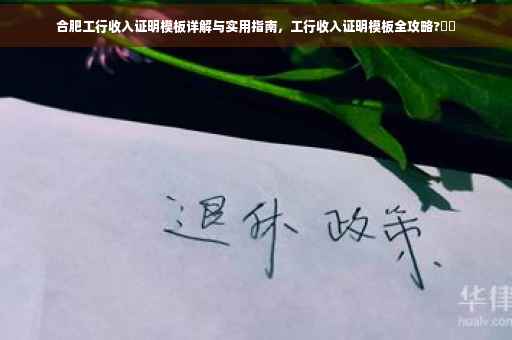 合肥工行收入证明模板详解与实用指南，工行收入证明模板全攻略?
退休 政策
华律
hualv.com